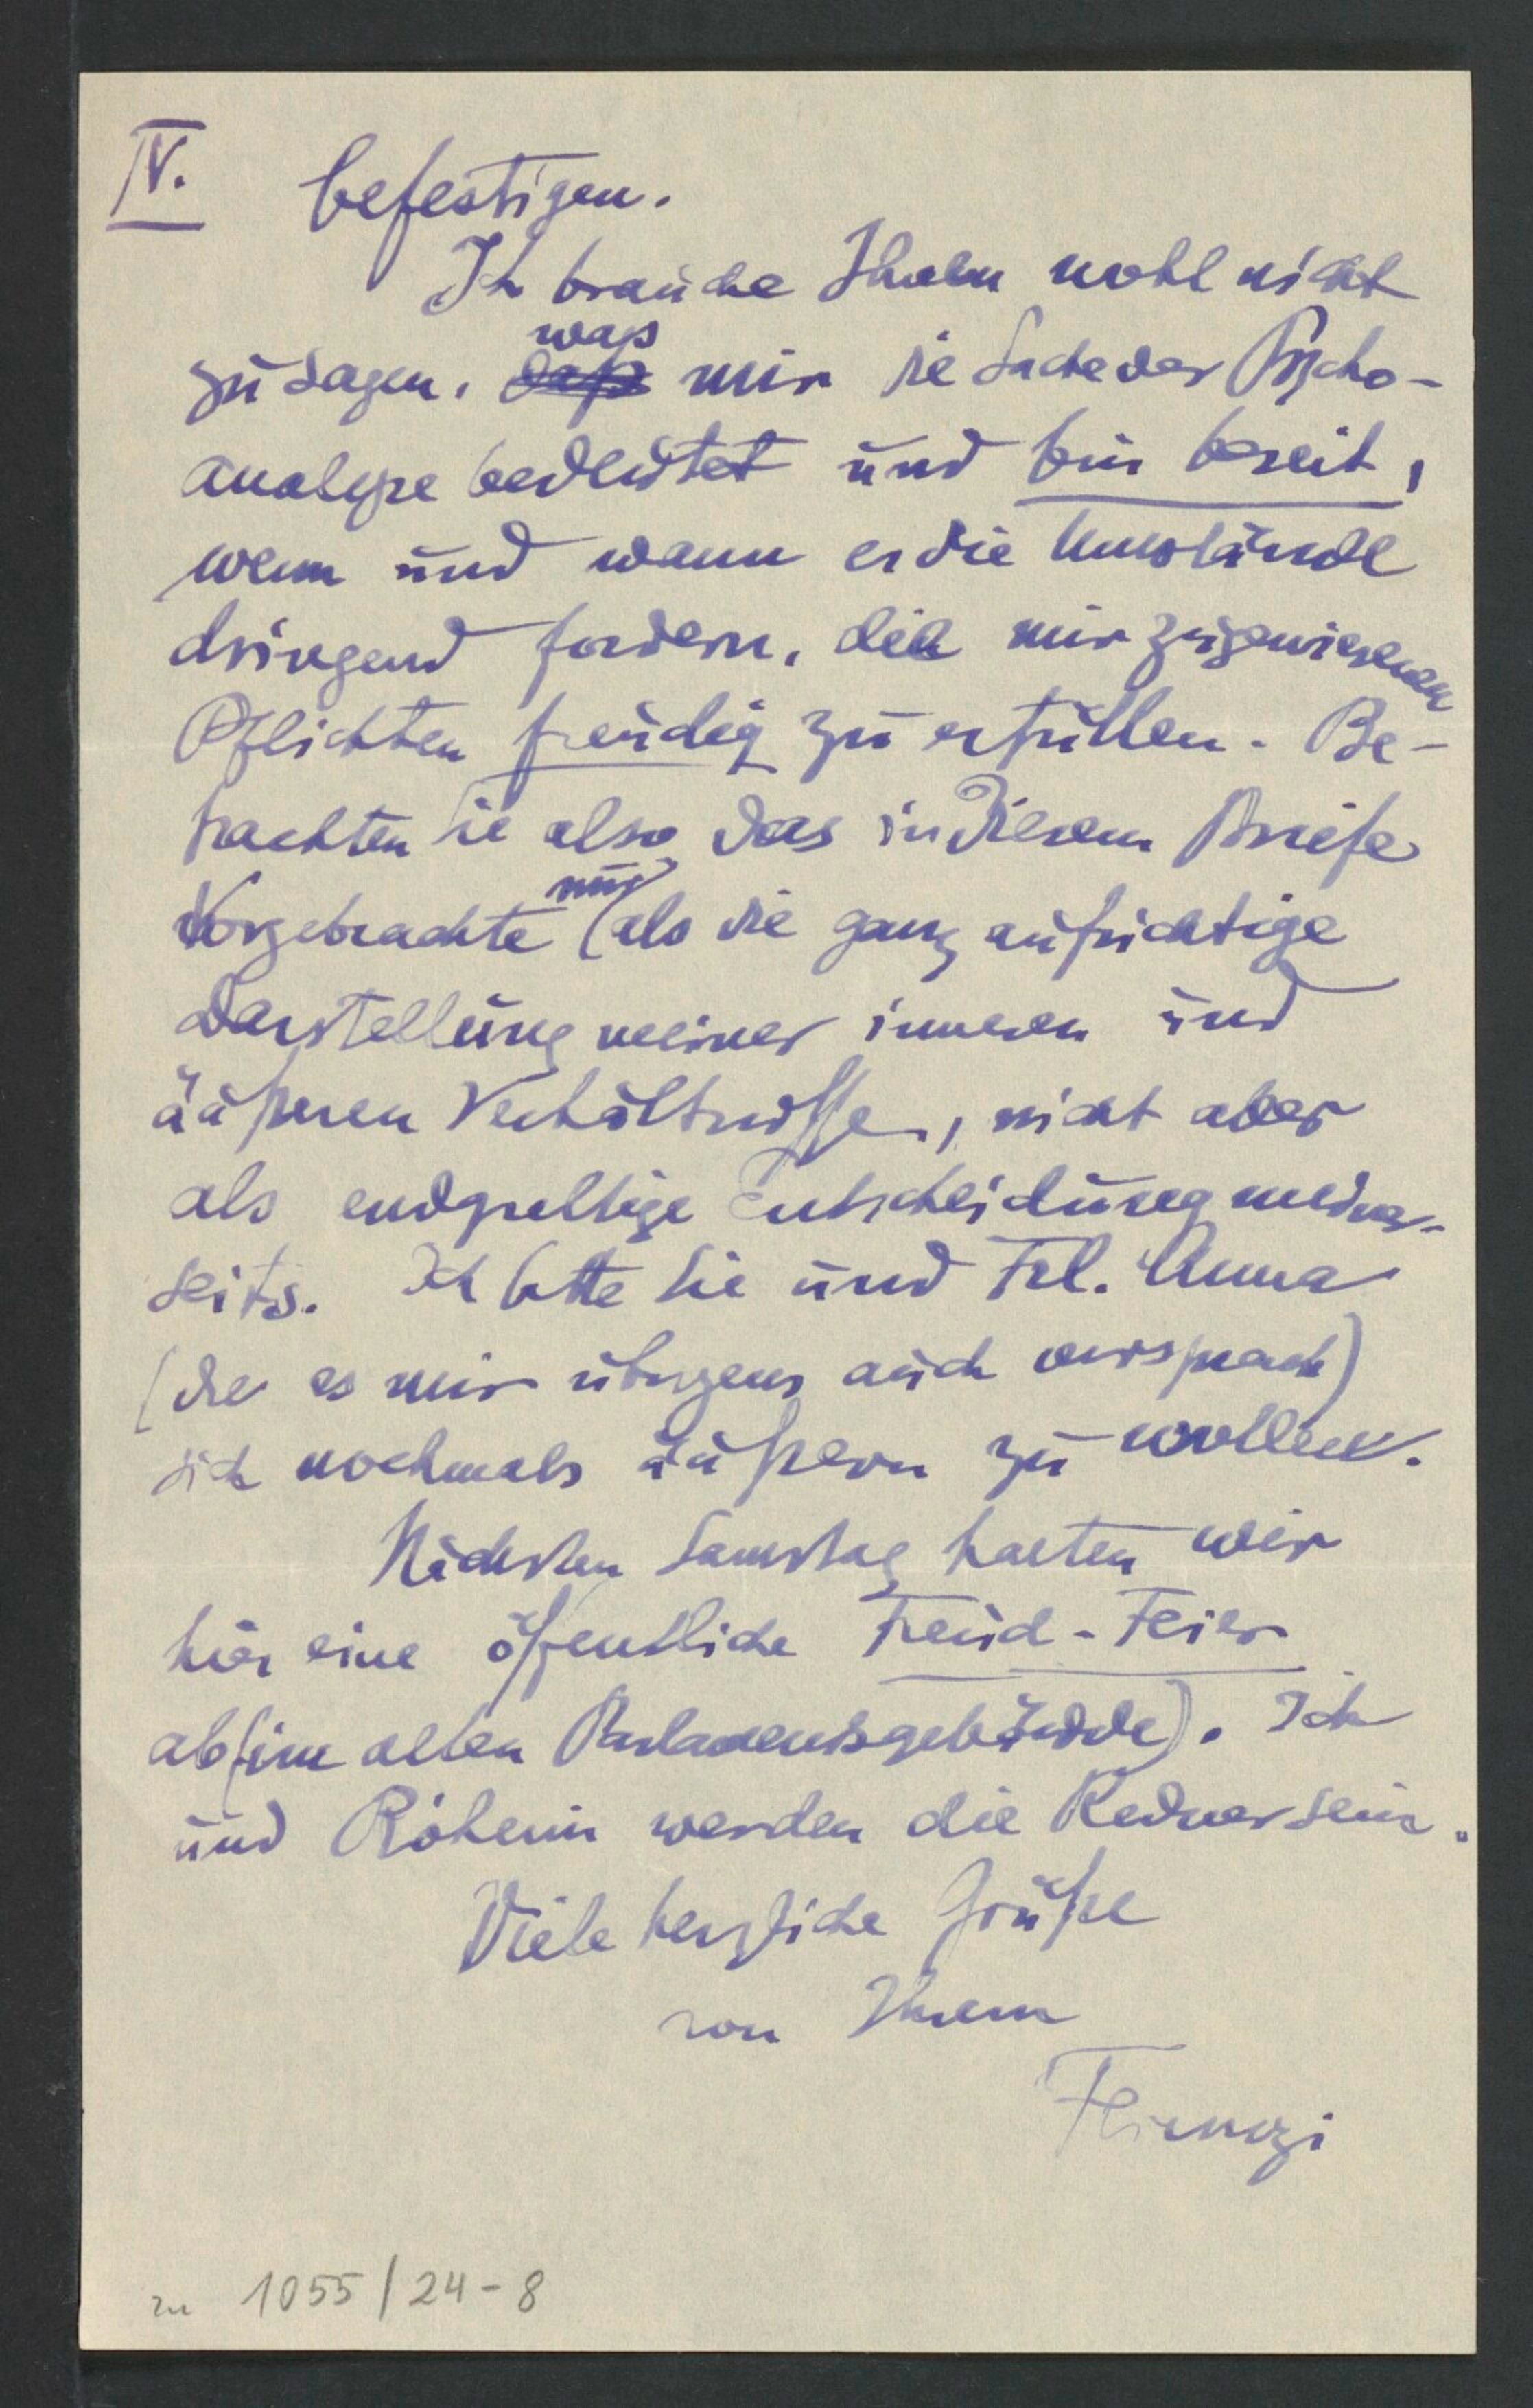 IV.
befestigen.
Ich brauche Ihnen wohl nicht
zu sagen, daß was mir die Sache der Psycho-
analyse bedeutet und bin bereit,
wenn und wann es die Umstände
dringend fordern, die mir zugewiesenen
Pflichten freudig zu erfüllen. Be-
trachten Sie also das in diesem Briefe
Vorgebrachte nur als die ganz aufrichtige
Darstellung meiner inneren und
äußeren Verhältnisse, nicht aber
als endgiltige Entscheidung meiner-
seits. Ich bitte Sie und Frl. Anna
(die es mir übrigens auch versprach)
sich nochmals äußern zu wollen.
Nächsten Samstag halten wir
hier eine öffentliche Freud-Feier
ab (im alten Parlamentsgebäude). Ich
und Róheim werden die Redner sein.
Viele herzliche Grüße
von Ihrem
Ferenczi
zu 1055/24-8